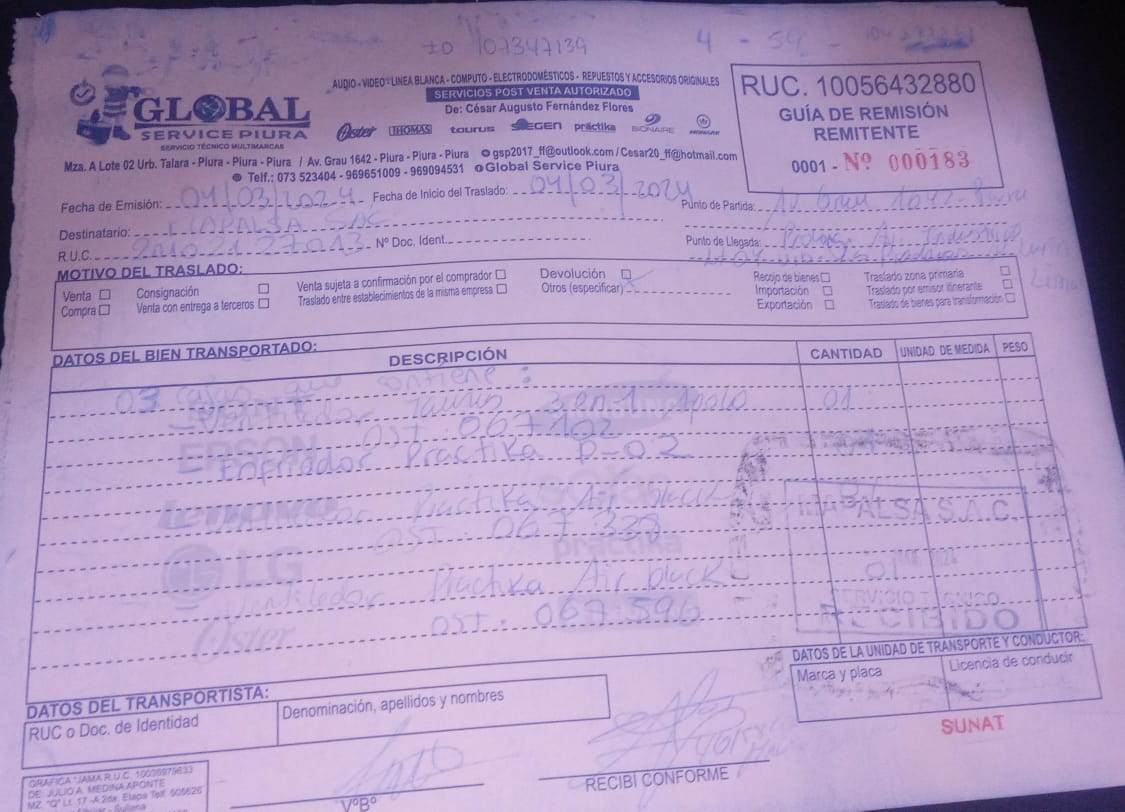 ID 107347139 4 - 59 -
GLOBAL
SERVICE PIURA
SERVICIO TÉCNICO MULTIMARCAS
AUDIO - VIDEO - LINEA BLANCA - COMPUTO - ELECTRODOMÉSTICOS - REPUESTOS Y ACCESORIOS ORIGINALES
SERVICIOS POST VENTA AUTORIZADO
De: César Augusto Fernández Flores
Oster THOMAS taurus SIEGEN práctika BIONAIRE
Mza. A Lote 02 Urb. Talara - Piura - Piura - Piura / Av. Grau 1642 - Piura - Piura - Piura gsp2017_ff@outlook.com / Cesar20_ff@hotmail.com
Telf.: 073 523404 - 969651009 - 969094531 Global Service Piura
RUC. 10056432880
GUÍA DE REMISIÓN
REMITENTE
0001 - Nº 000183
Fecha de Emisión: 04/03/2024 Fecha de Inicio del Traslado: 04/03/2024 Punto de Partida: Av Grau 1642-Piura
Destinatario: SAC
R.U.C. 20102127013 Nº Doc. Ident. Punto de Llegada: Prolong. Av. Industrial
Lurin
Lima
MOTIVO DEL TRASLADO:
Venta Consignación Venta sujeta a confirmación por el comprador Devolución Recojo de bienes Traslado zona primaria
Compra Venta con entrega a terceros Traslado entre establecimientos de la misma empresa Otros (especificar) X Importación Traslado por emisor itinerante
Exportación Traslado de bienes para transformación
DATOS DEL BIEN TRANSPORTADO:
DESCRIPCIÓN CANTIDAD UNIDAD DE MEDIDA PESO
03 cajas que contiene:
- Ventilador Taurus 3 en 1 Apolo 01
OST. 067102
EPSON
Enfriador Practika P-02
Lenovo
Practika Air black
OST. 067 338
práctika
LG
Ventilador Practika Air black 01
OST. 067 596
Oster
MABALSA S.A.C.
SERVICIO TÉCNICO
RECIBIDO
DATOS DEL TRANSPORTISTA:
RUC o Doc. de Identidad Denominación, apellidos y nombres
DATOS DE LA UNIDAD DE TRANSPORTE Y CONDUCTOR:
Marca y placa Licencia de conducir
SUNAT
GRAFICA "JAMA R.U.C. 10035979633
DE: JULIO A. MEDINA APONTE
MZ. "Q" Lt. 17 - A 2da. Etapa Telf. 505626
VºBº
RECIBI CONFORME